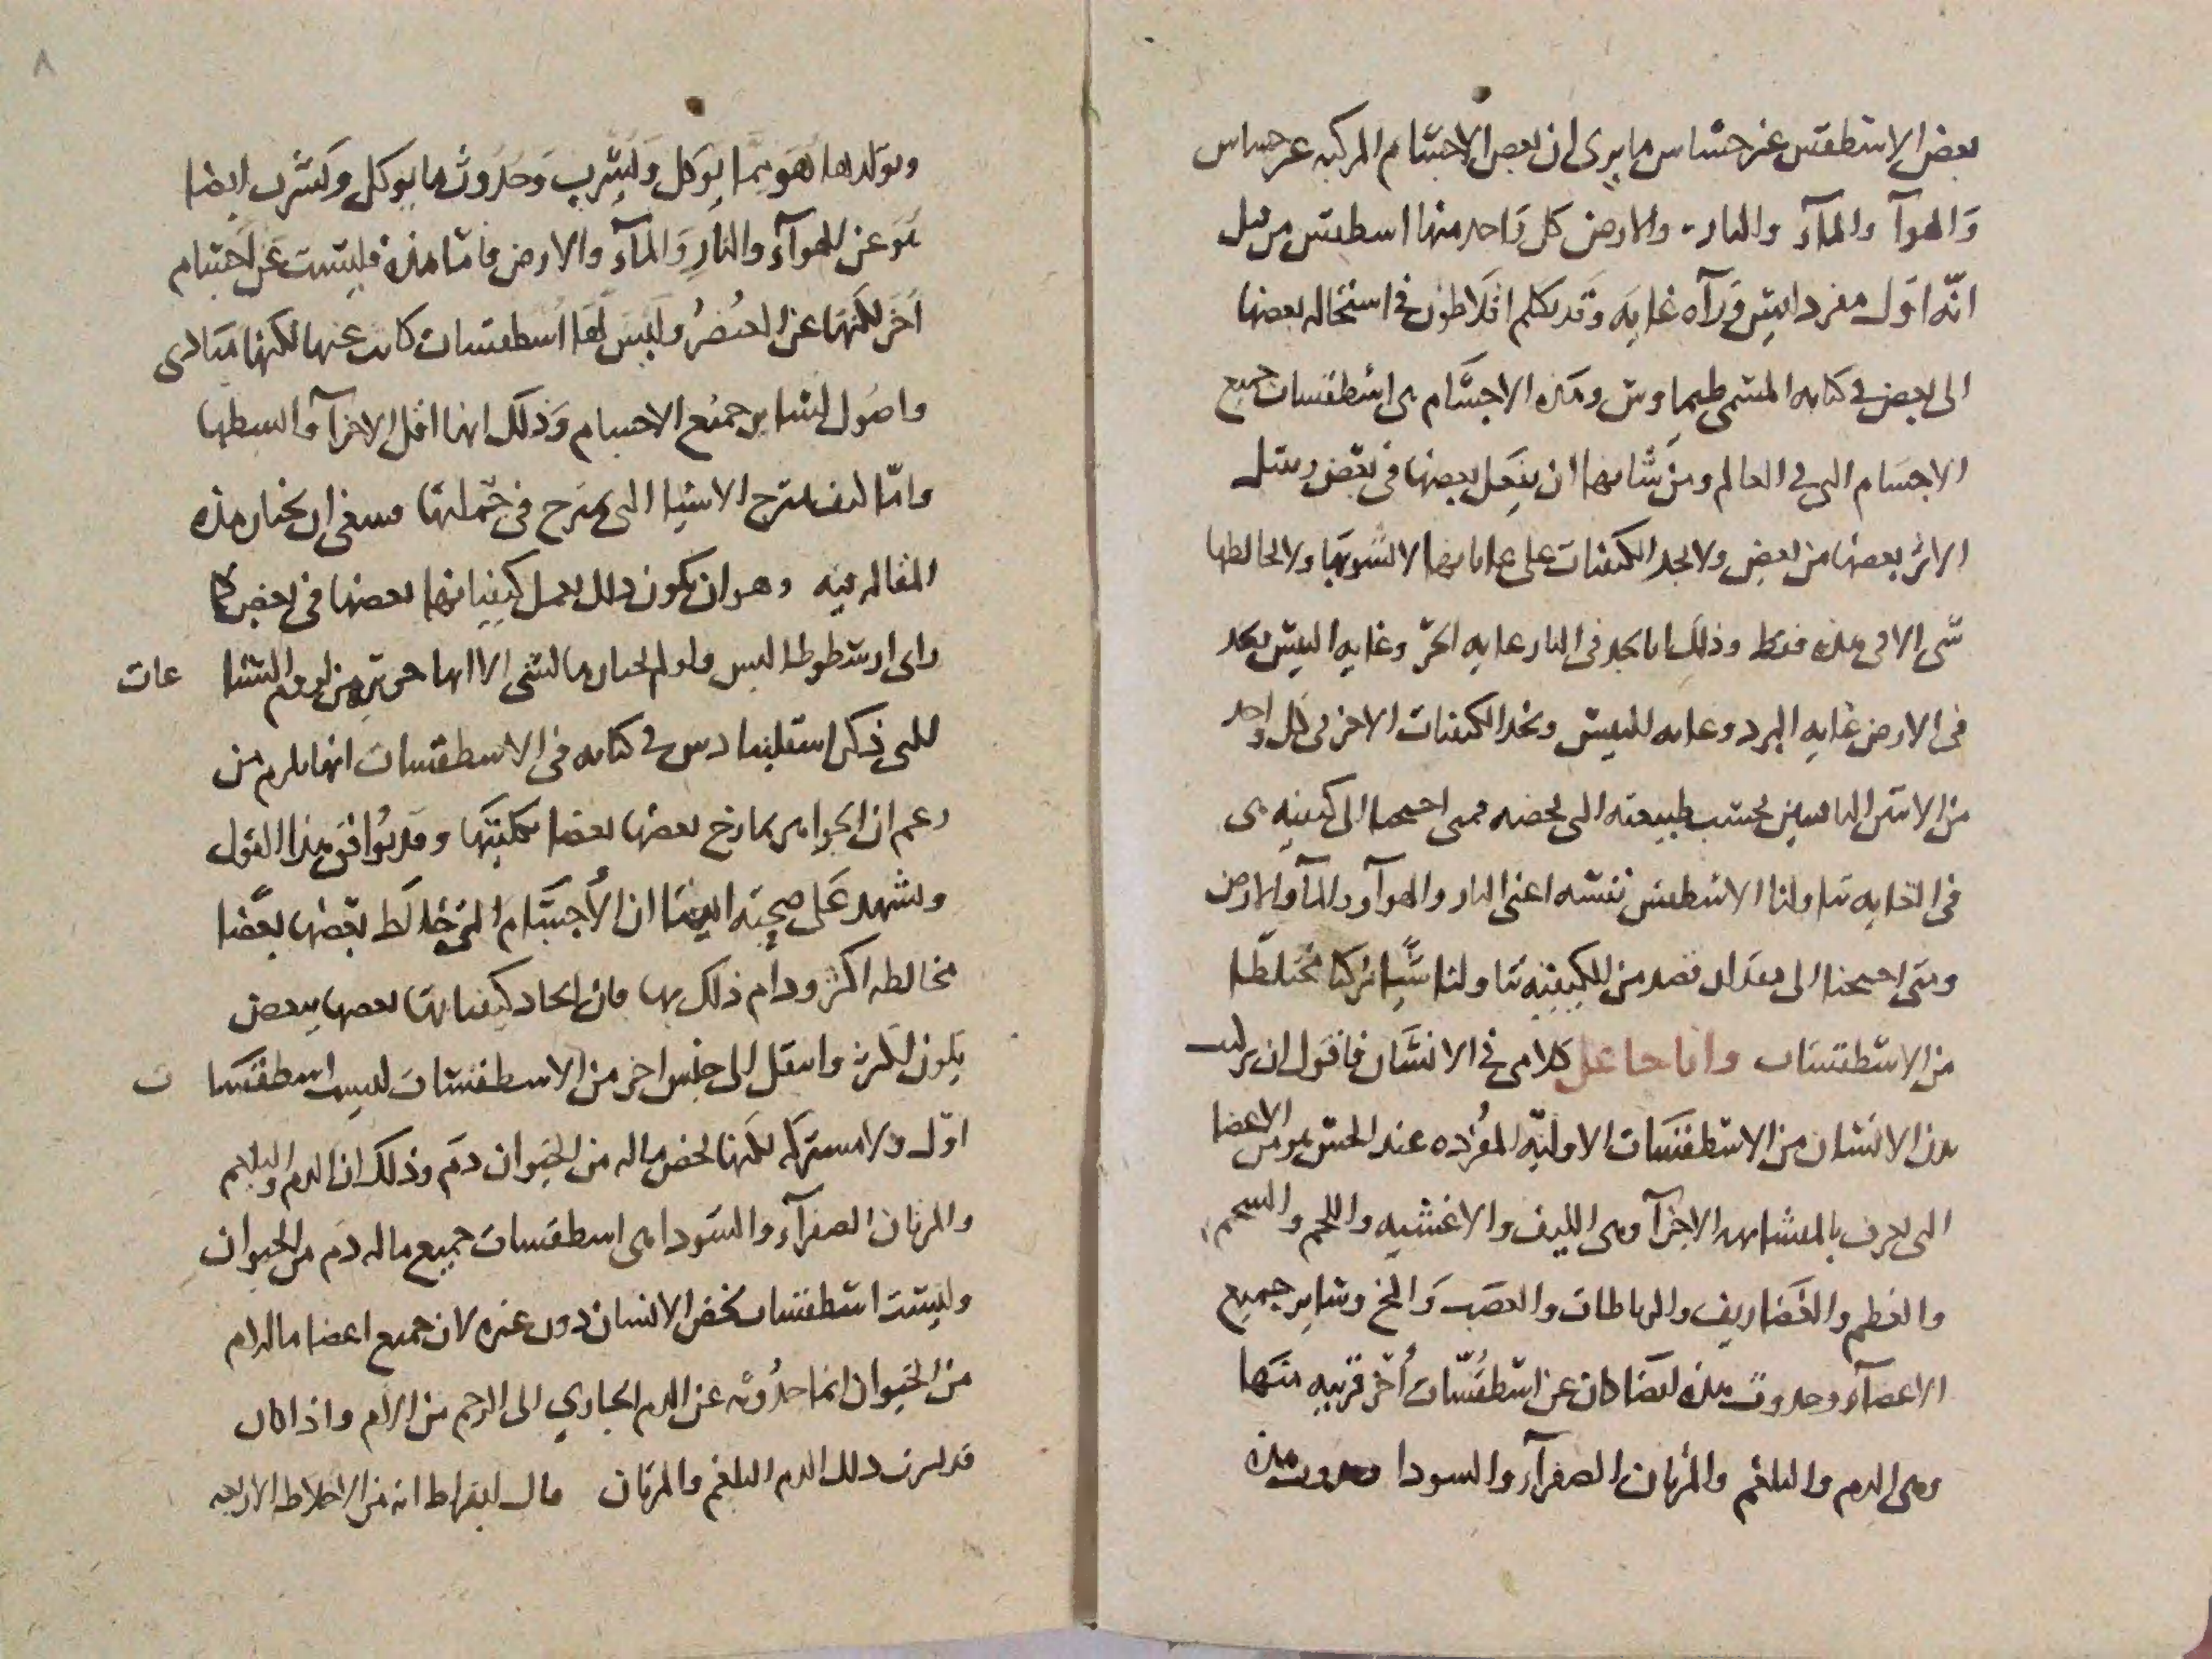 بعض الاسطقس غير حساس ما يرى ان بعض الاجسام المركبه غير حساس
والهوآ والمآء والنار والارض كل واحد منها اسطقس من قبل
انّه اول مفرد ليس ورآه غايه وقد تكلم افلاطون فى استحاله بعضها
الى بعض فى كتابه المسمى طيماوس وهذه الاجسام هى اسطقسات جميع
الاجسام التى فى العالم ومن شانها ان يفعل بعضها فى بعض ويقبل
الاثر بعضها من بعض ولا نجد الكيفيات على غاياتها لا يشوبها ولا يخالطها
شى الا فى هذه فقط وذلك انا نجد فى النار غايه الحرّ وغايه اليبس ونجد
فى الارض غايه البرد وغايه اليبس ونجد الكيفيات الاخر فى كل واحد
من الاثنين الباقيين بحسب طبيعته التى تخصه فمتى احتجنا الى كيفيه هى
فى الغايه تناولنا الاسطقس نفسه اعنى النار والهوآء والمآء والارض
ومتى احتجنا الى مقدار قصد من الكيفيه تناولنا شيا مركبا مختلطا
من الاسطقسات وانا جاعل كلامى فى الانسان فاقول ان تركيب
بدن الانسان من الاسطقسات الاوليّه المفرده عند الحس هو من الاعضا
التى تعرف بالمتشابهه الاجزآ وهى الليف والاغشيه واللحم والشحم
والعظم والغضاريف والرباطات والعصب والمخ وساير جميع
الاعضآء وحدوث هذه ايضا كان عن اسطقسات أخر قريبه منها
وهى الدم والبلغم والمرتان الصفرآء والسودا وحدوث هذه
وتولدها هو مما يوكل ويشرب وحدوث ما يوكل ويشرب ايضا
هو عن الهوآء والنار والمآء والارض فاما هذه فليست عن اجسام
اخر لكنها عن العنصر وليس لها اسطقسات كانت عنها لكنها مبادى
واصول لساير جميع الاجسام وذلك انها اقل الاجزآ وابسطها
وامّا كيف تمتزج الاشيا التى تمتزج فى جملتها فينبغى ان نختار هذه
المقاله فيه وهو ان يكون ذلك بعمل كيفياتها بعضها فى بعض كما
راى ارسطوطاليس ولو لم نختارها لشى الا انها حريّه من لزوم الشناعات
التى ذكر اسقلبيادس فى كتابه فى الاسطقسات انها تلزم من
زعم ان الجواهر يمازج بعضها بعضا بكليتها وقد يوافق هذا القول
ويشهد على صحته ايضا ان الأجسام التى خالط بعضها بعضا
مخالطه اكثر ودام ذلك بها فان اتحاد كيفياتها بعضها ببعض
يكون اكثر وانتقل الى جنس اخر من الاسطقسات ليست اسطقسات
اوّل ولا مشتركه لكنها تخص ما له من الحيوان دم وذلك ان الدم والبلغم
والمرتان الصفرآء والسودا هى اسطقسات جميع ما له دم من الحيوان
وليست اسطقسات تخص الانسان دون غيره لان جميع اعضا ما له دم
من الحيوان انما حدُوثه عن الدم الجاري الى الرحم من الام واذا كان
قد يرى ذلك الدم البلغم والمرتان قال ابقراط انه من الاخلاط الاربعه